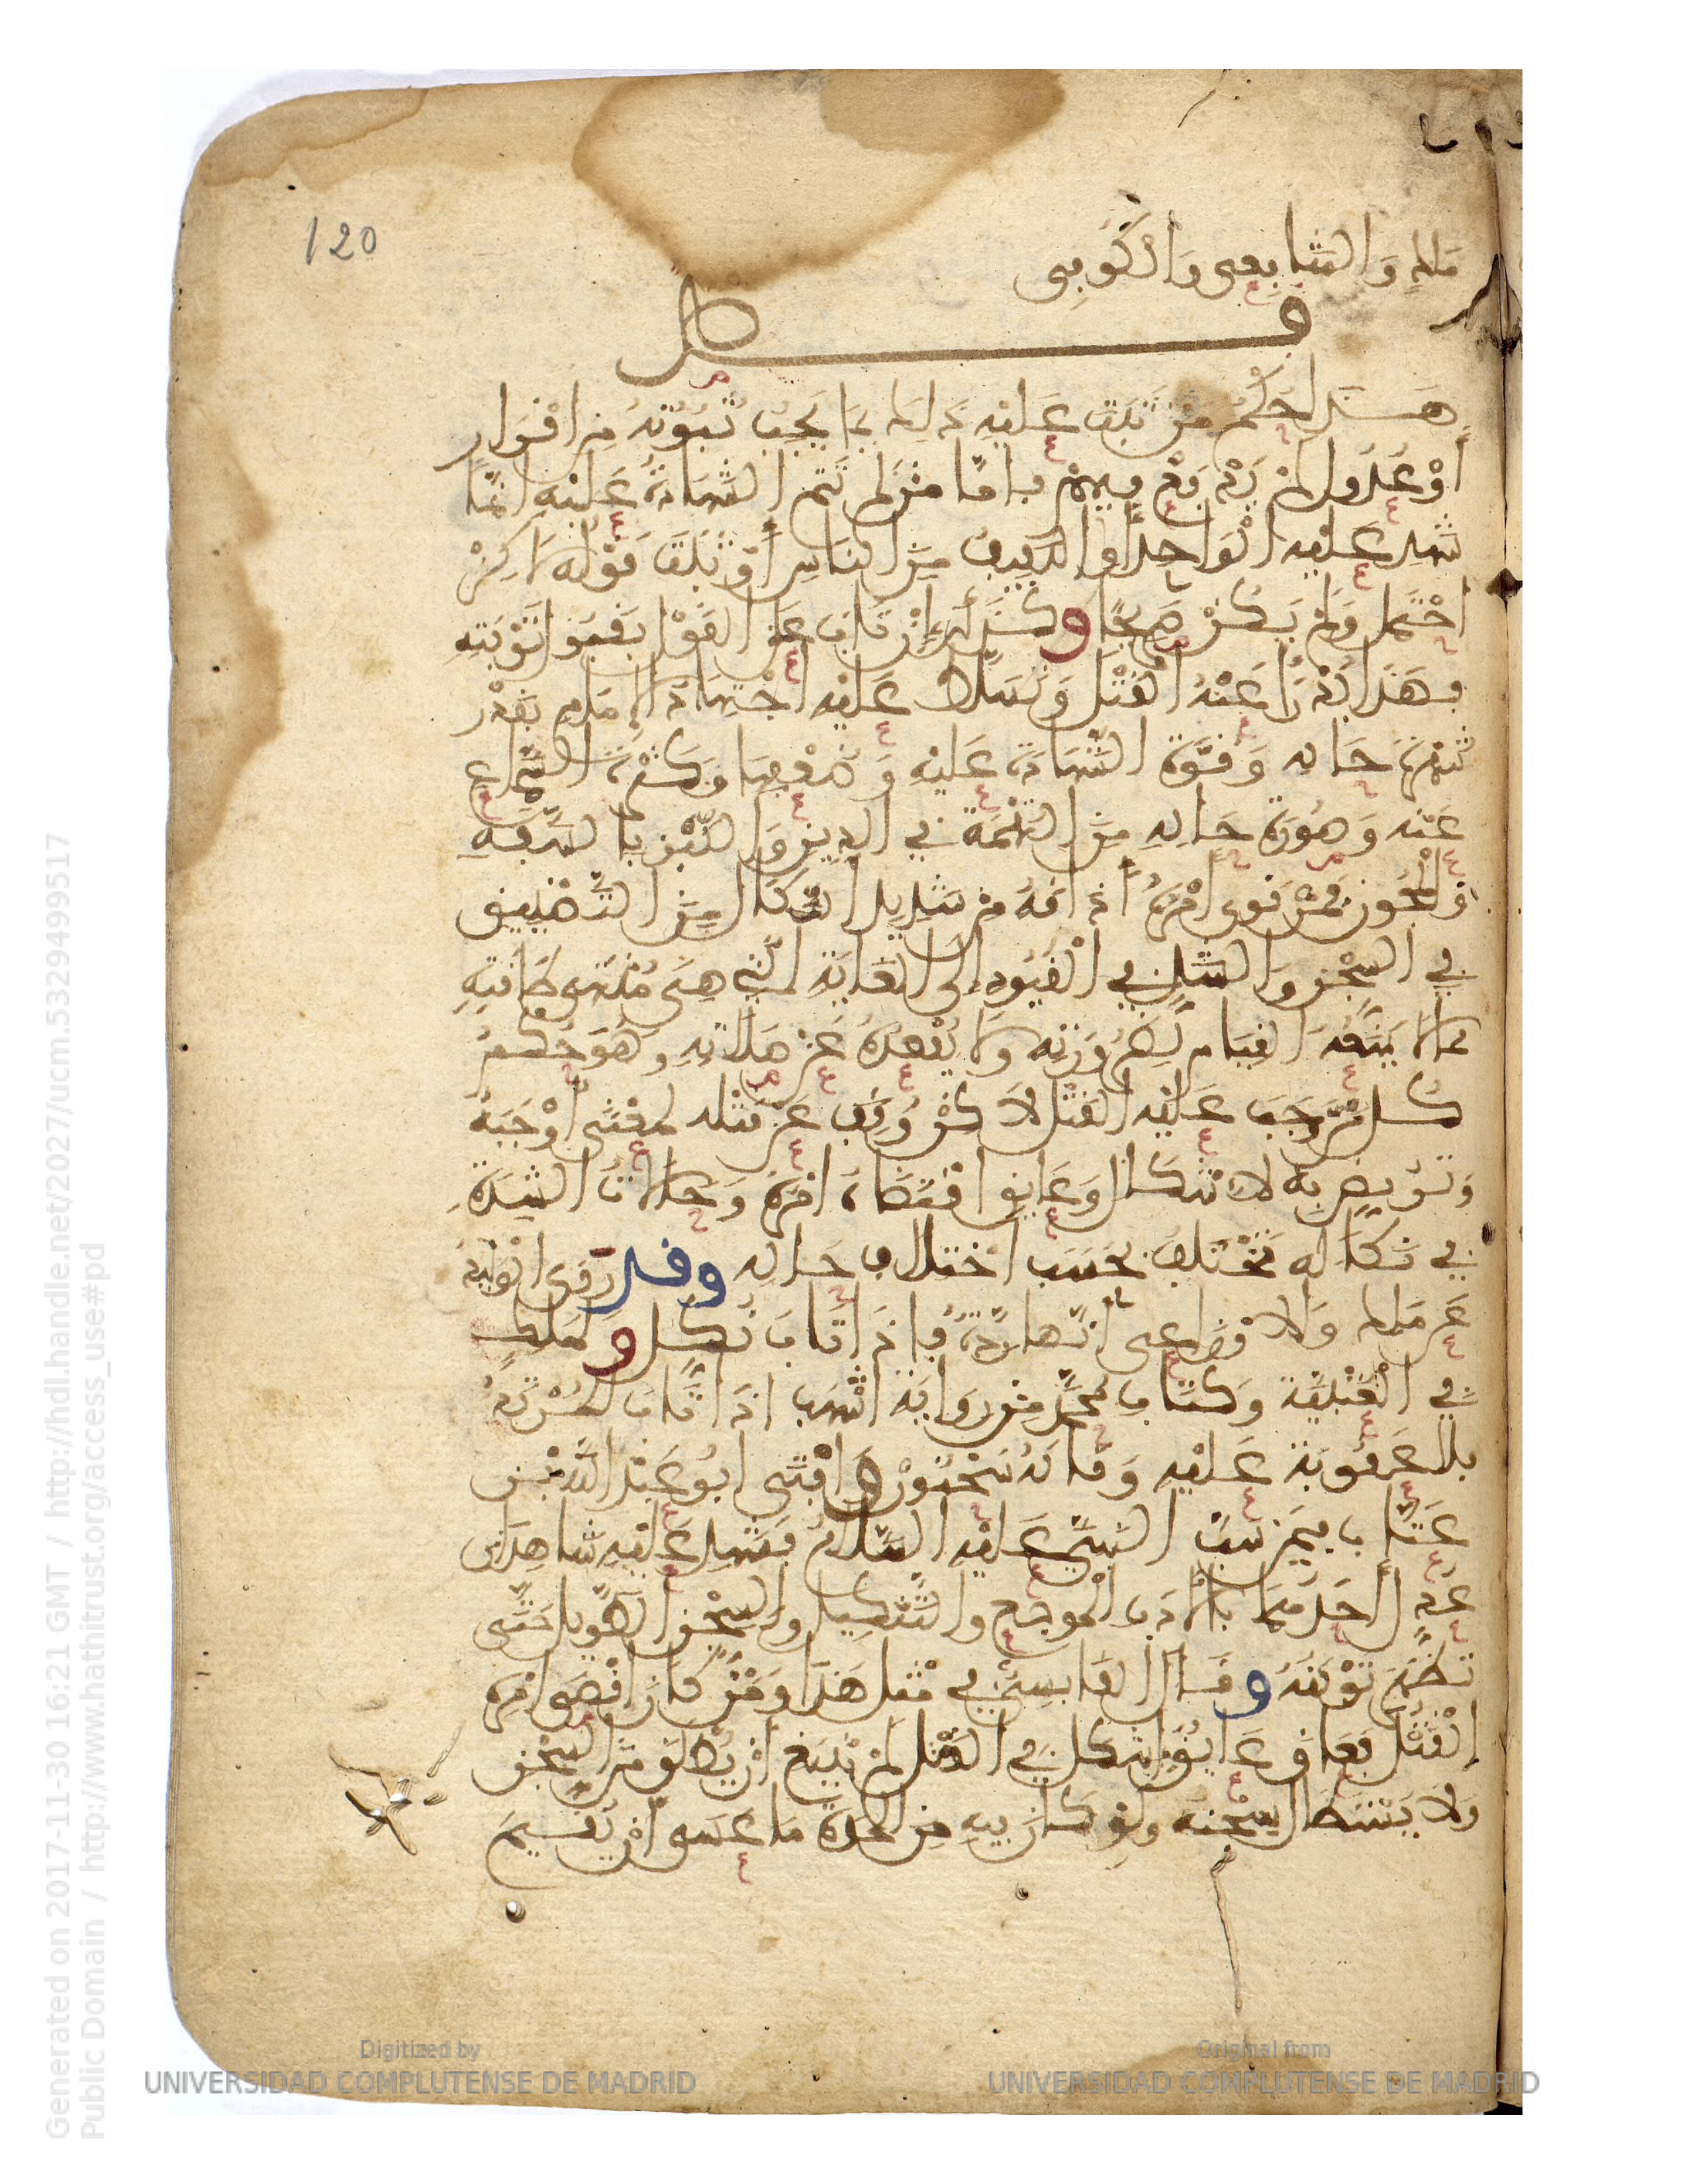 120
ملك والشافعي والكوفي
فصل
هذا حكم من ثبت عليه ذلك بما يجب ثبوته من اقرار
أو عدول لم يدفع فيهم فاما من لم تتم الشهادة عليه انما
شهد عليه الواحد أو اللفيف من الناس أو ثبت قوله لاكن
احتمل ولم يكن صريحا وكذلك إن تاب على القول بقبول توبته
فهذا يدرأ عنه القتل ويتسلط عليه اجتهاد الإمام بقدر
شهرة حاله وقوة الشهادة عليه وضعفها وكثرة السماع
عنه وصورة حاله من التهمة في الدين والنبز بالسفه
والمجون فمن قوي أمره أذاقه من شديد النكال من التضييق
في السجن والشد في القيود إلى الغاية التي هي منتهى طاقته
مما لا يمنعه القيام لضرورته ولا يقعده عن صلاته وهو حكم
كل من وجب عليه القتل لاكن وقف عن قتله لمعنى أوجبه
وتربص به لاشكال وعايق اقتضاه امره وحالات الشدة
في نكاله تختلف بحسب اختلاف حاله وقد روى الوليد
عن ملك والاوزاعي انها ردة فإذا تاب نكل ولملك
في العتبية وكتاب محمد من رواية أشهب اذا تاب المرتد
فلا عقوبة عليه وقاله سحنون وافتى ابو عبد الله بن
عتاب فيمن سب النبي عليه السلام فشهد عليه شاهدان
عدل أحدهما بالأدب الموجع والتنكيل والسجن الطويل حتى
تظهر توبته وقال القابسي في مثل هذا ومن كان أقصى امره
القتل فعاق عايق اشكل في القتل لم ينبغ أن يطلق من السجن
ولا يستطال سجنه ولو كان فيه من المدة ما عسى أن يقيم
Generated on 2017-11-30 16:21 GMT / http://hdl.handle.net/2027/ucm.5329499517
Public Domain / http://www.hathitrust.org/access_use#pd
Digitized by
UNIVERSIDAD COMPLUTENSE DE MADRID
Original from
UNIVERSIDAD COMPLUTENSE DE MADRID